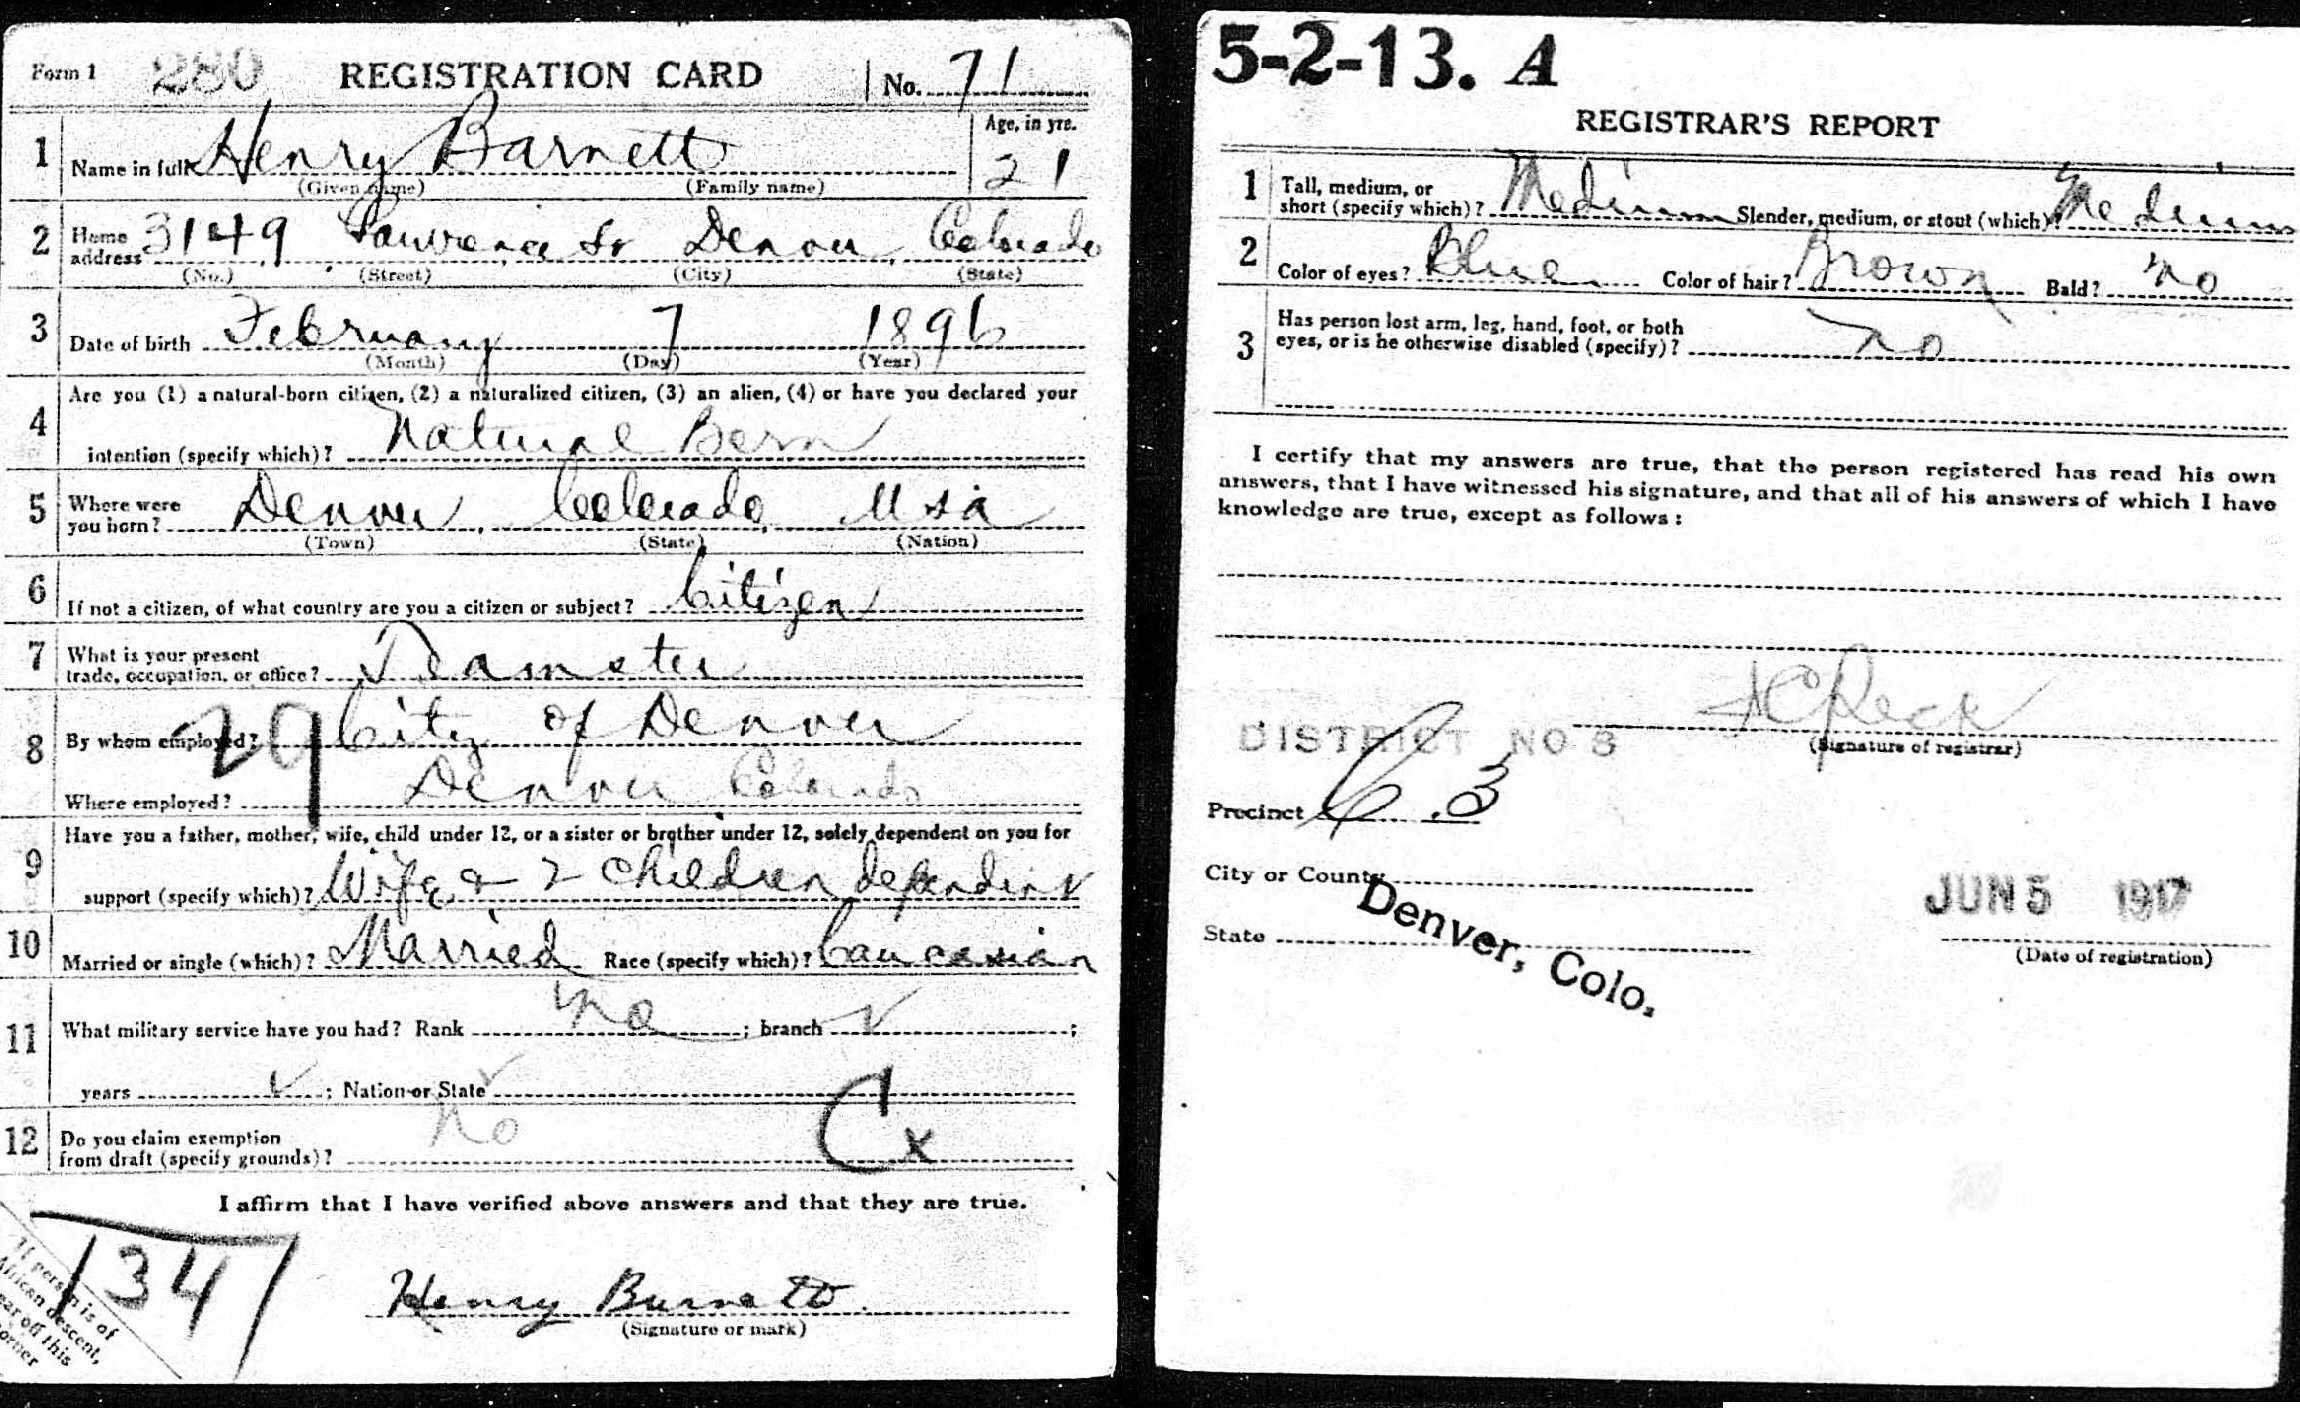 Form 1 280 REGISTRATION CARD No. 71
1 Name in full Henry Barnett Age, in yrs. 21
(Given name) (Family name)
2 Home address 3149 Lawrence St Denver, Colorado
(No.) (Street) (City) (State)
3 Date of birth February 7 1896
(Month) (Day) (Year)
4 Are you (1) a natural-born citizen, (2) a naturalized citizen, (3) an alien, (4) or have you declared your
intention (specify which)? Natural Born
5 Where were you born? Denver, Colorado, USA
(Town) (State) (Nation)
6 If not a citizen, of what country are you a citizen or subject? Citizen
7 What is your present trade, occupation, or office? Teamster
8 By whom employed? City of Denver
29
Where employed? Denver Colorado
9 Have you a father, mother, wife, child under 12, or a sister or brother under 12, solely dependent on you for
support (specify which)? Wife & 2 children dependent
10 Married or single (which)? Married Race (specify which)? Caucasian
11 What military service have you had? Rank No ; branch ✓ ;
years ✓ ; Nation or State ✓
12 Do you claim exemption from draft (specify grounds)? No Cx
I affirm that I have verified above answers and that they are true.
1347
Henry Burnett
(Signature or mark)
If person is of
African descent,
tear off this
corner
5-2-13. A
REGISTRAR'S REPORT
1 Tall, medium, or short (specify which)? Medium Slender, medium, or stout (which)? Medium
2 Color of eyes? Blue Color of hair? Brown Bald? No
3 Has person lost arm, leg, hand, foot, or both
eyes, or is he otherwise disabled (specify)? No
I certify that my answers are true, that the person registered has read his own
answers, that I have witnessed his signature, and that all of his answers of which I have
knowledge are true, except as follows:
DISTRICT NO 3
(Signature of registrar)
Precinct C. 3
City or County
State
Denver, Colo.
JUN 5 1917
(Date of registration)